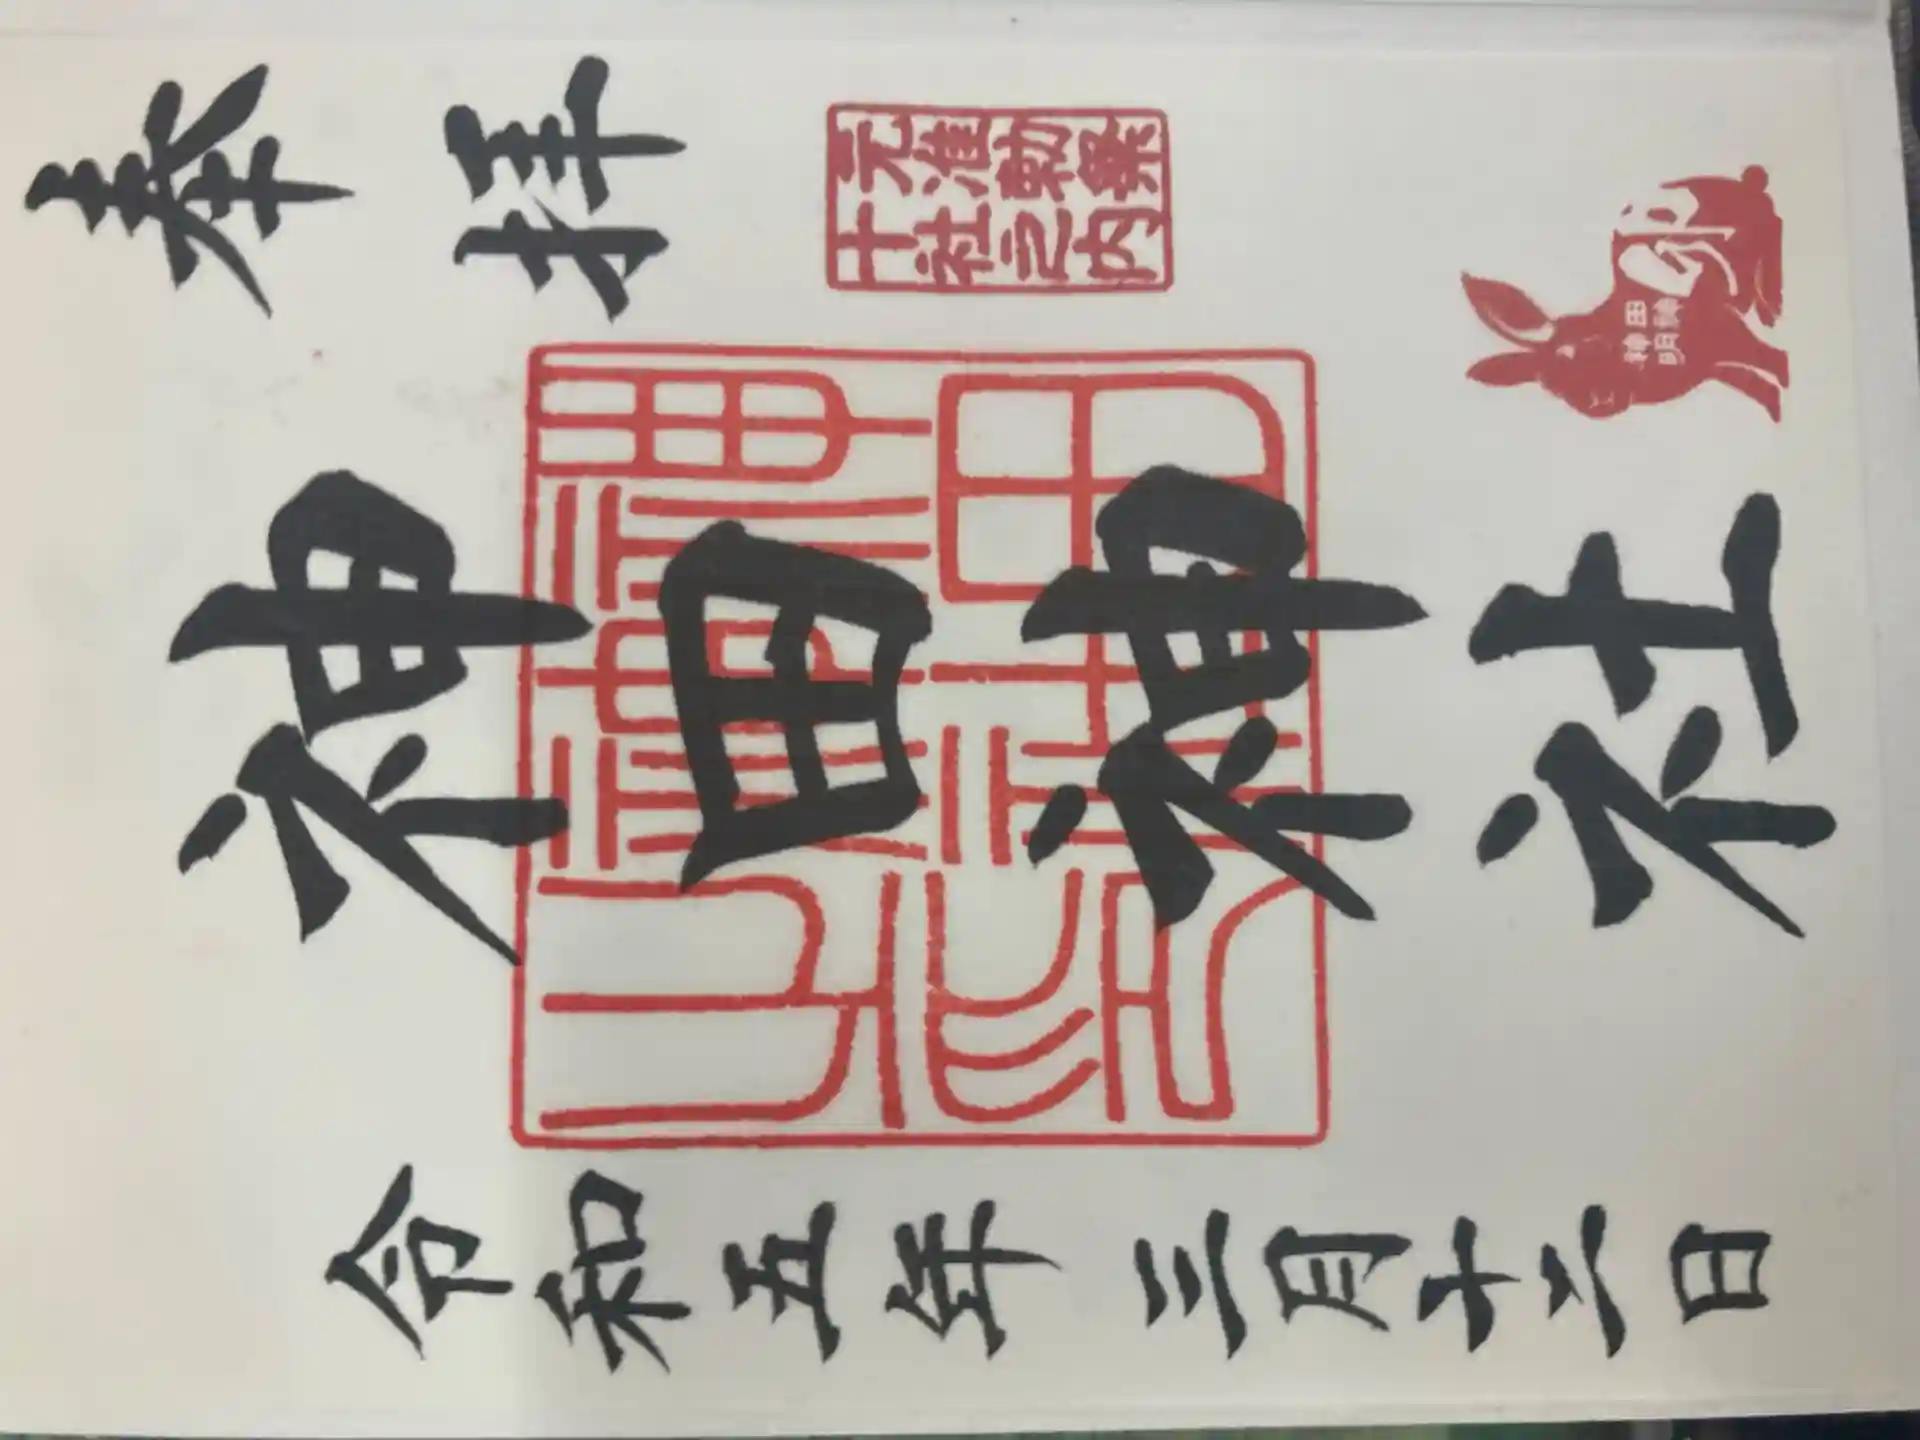 奉拝
元准勅祭
十社之内
神田
明神
神田神社
神田
神社
之印
令和五年三月十二日